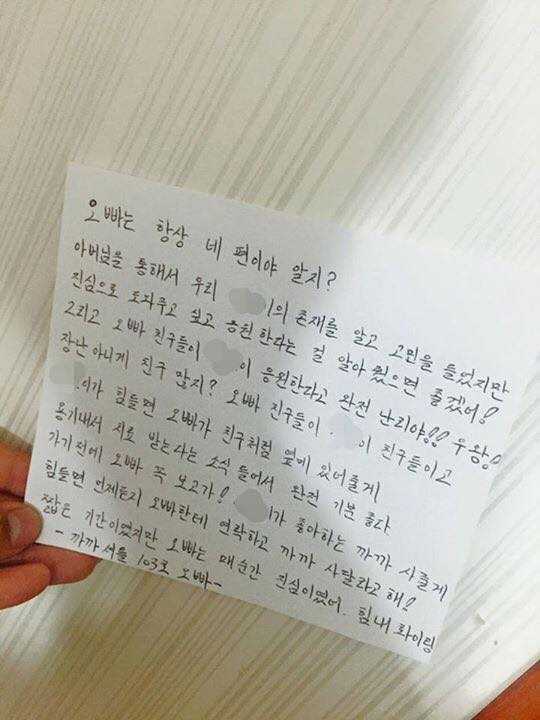 오빠는 항상 네 편이야 알지?
아버님을 통해서 우리 이의 존재를 알고 고민을 들었지만
진심으로 도와주고 싶고 응원한다는 걸 알아줬으면 좋겠어!
그리고 오빠 친구들이 이 응원한다고 완전 난리야!! 우왕!
장난아니게 친구 많지? 오빠 친구들이 이 친구들이고
이가 힘들면 오빠가 친구처럼 옆에 있어줄게
용기내서 치료 받는다는 소식 들어서 완전 기분 좋다
가기전에 오빠 꼭 보고가! 이가 좋아하는 까까 사줄게
힘들면 언제든지 오빠한테 연락하고 까까 사달라고 해!
짧은 기간이였지만 오빠는 매순간 진심이였어. 힘내 화이팅
- 까까셔틀 103호 오빠-